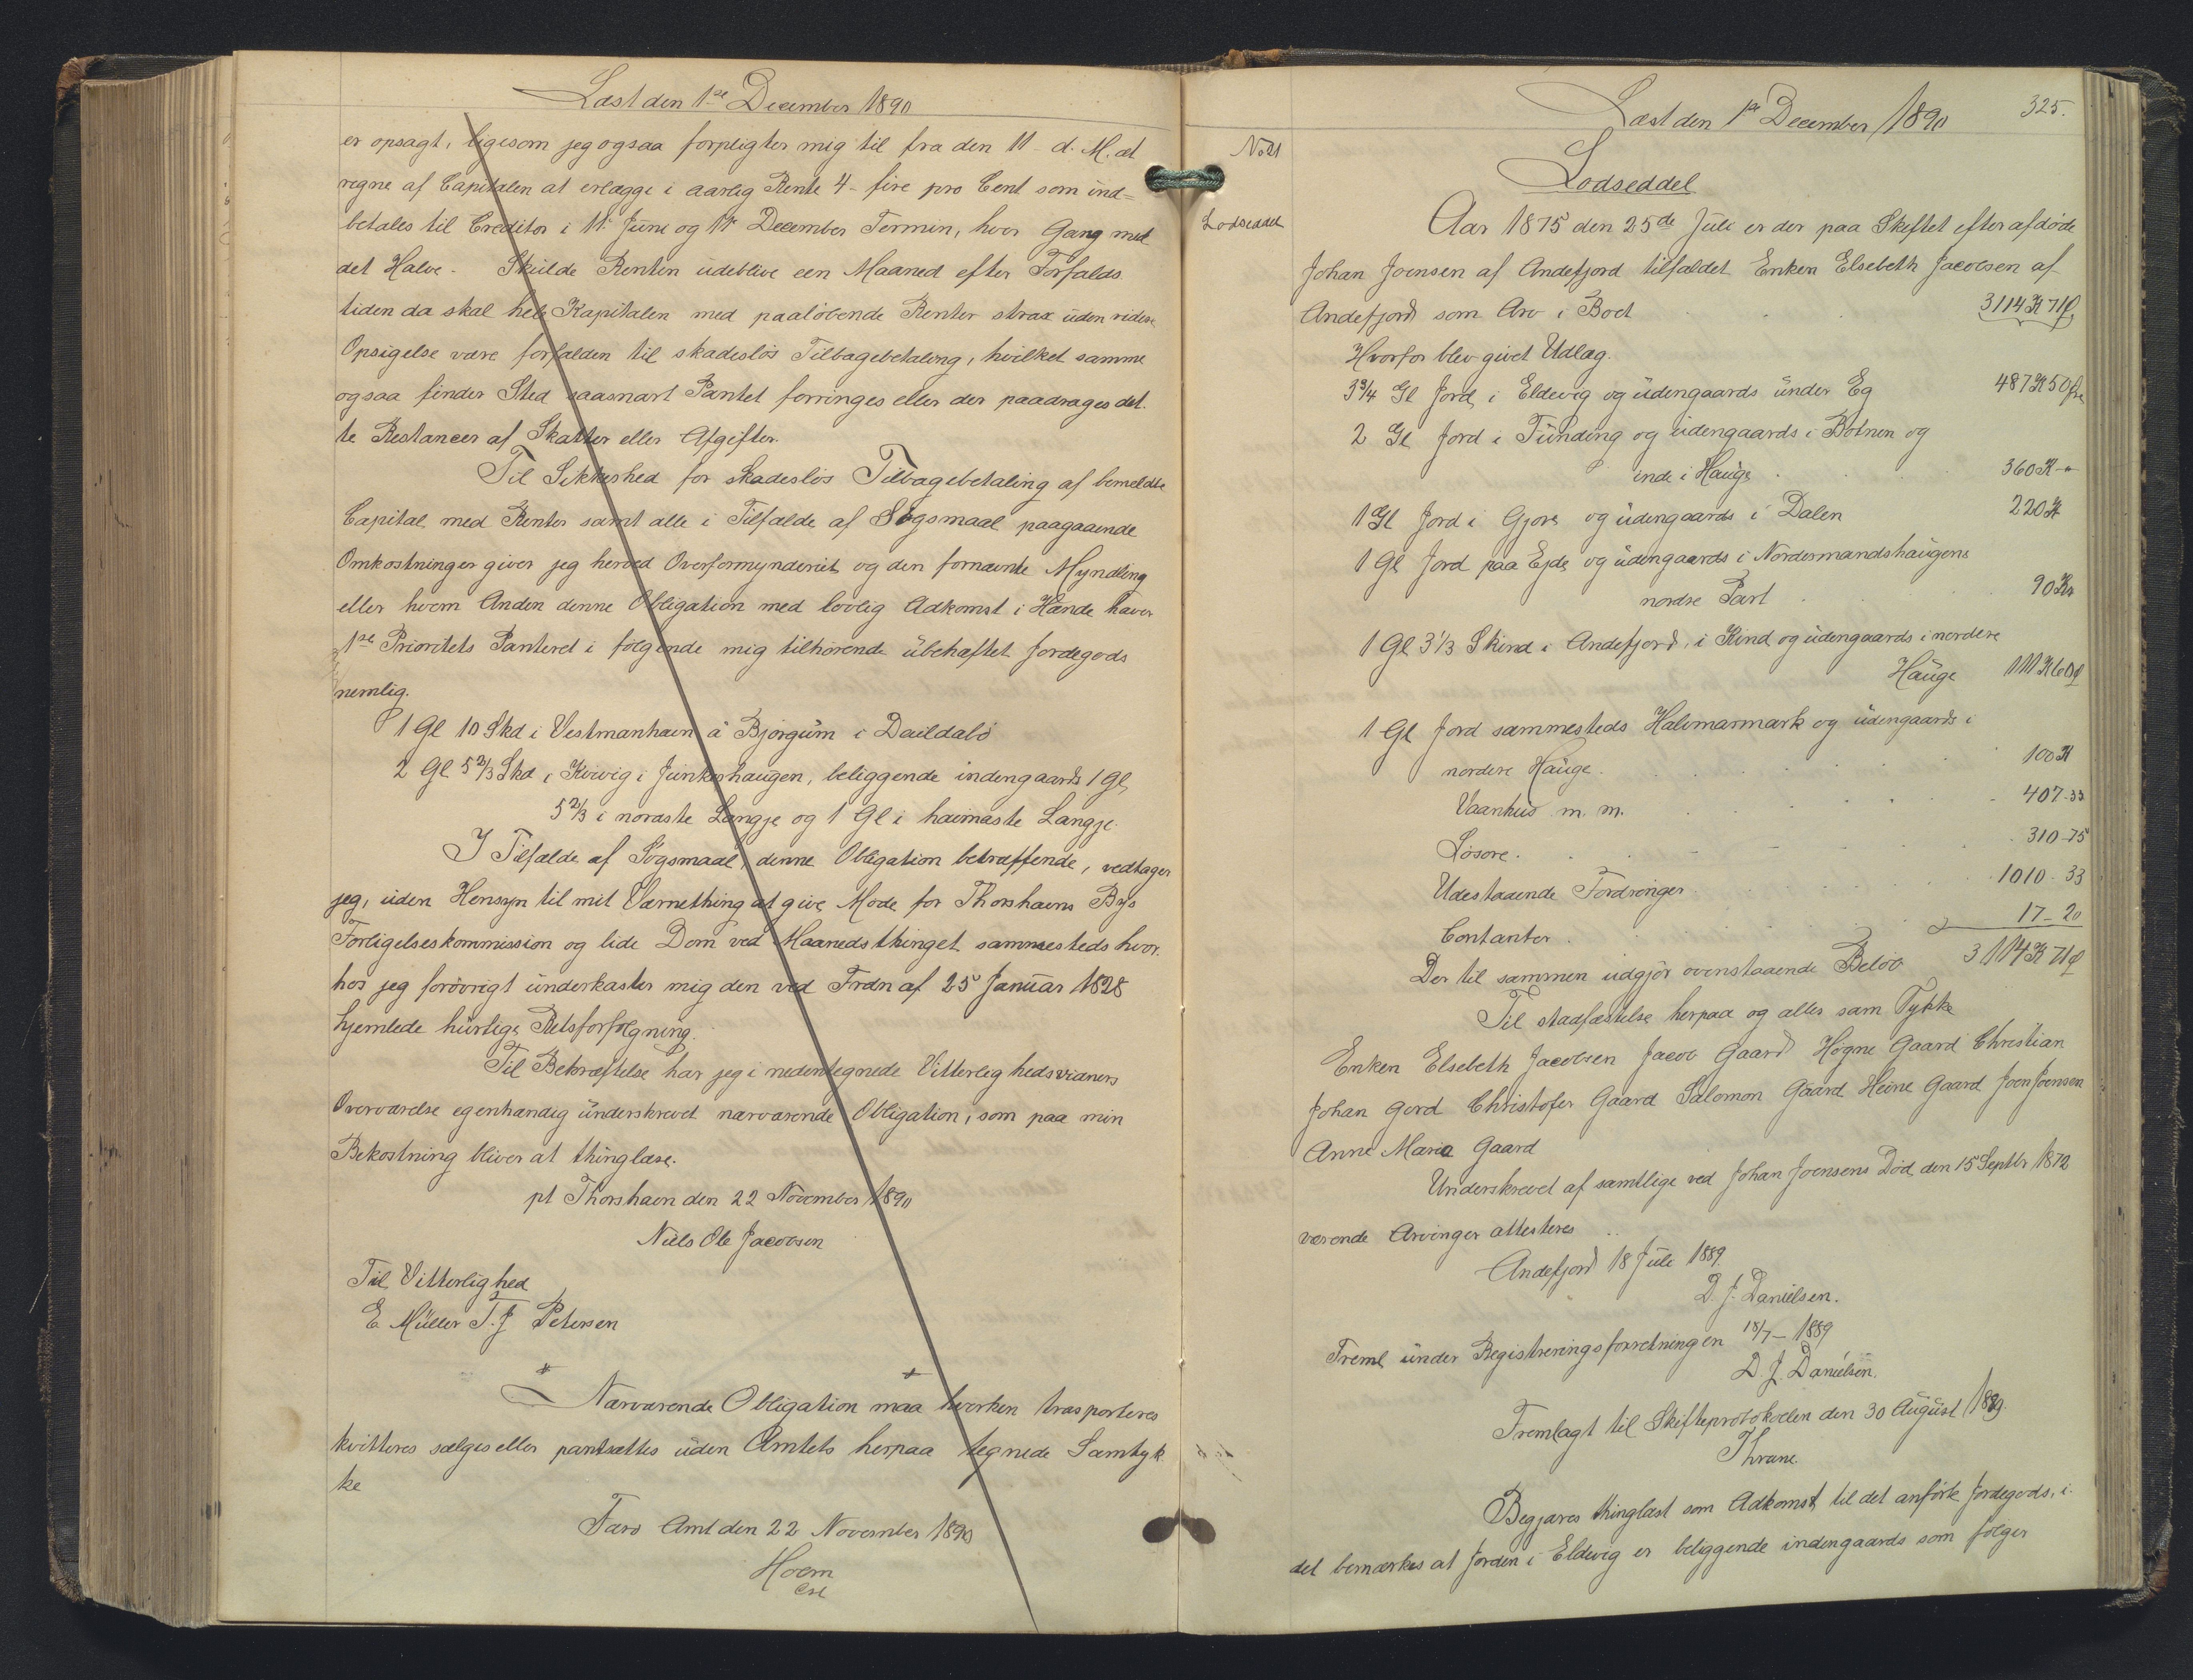 Læst den 1ste December 1890
er opsagt, ligesom jeg ogsaa forpligter mig til fra den 11 d. M. at
regne af Capitalen at erlægge i aarlig Rente 4 - fire pro Cent som ind=
betales til Creditor i 11 Juni og 11 December Termin, hver Gang med
det Halve - Skulde Renten udeblive een Maaned efter Forfalds
tiden da skal hele Kapitalen med paaløbende Renter strax uden videre
Opsigelse være forfalden til skadesløs Tilbagebetaling, hvilket samme
ogsaa finder Sted saasnart Pantet forringes eller der paadrages det.
te Restancer af Skatter eller Afgifter.
Til Sikkerhed for skadesløs Tilbagebetaling af bemeldte
Capital med Renter samt alle i Tilfælde af Søgsmaal paagaaende
Omkostninger giver jeg herved Overformynderiet og den fornævnte Myndling
eller hvem Anden denne Obligation med lovlig Adkomst i Hænde haver
1ste Prioritets Panteret i følgende mig tilhørende übehæftet Jordegods
nemlig.
1 Gl 10 Skd i Vestmanhavn á Bjørgum i Daildalö
2 Gl 5 2/3 Skd i Kvivig i Junkershaugen, beliggende indengaards 1 Gl
5 2/3 i noraste Langje og 1 Gl i haimaste Langje.
I Tilfælde af Søgsmaal, denne Obligation betræffende, vedtager
jeg, uden Hensyn til mit Værnething at give Møde for Thorshavns Bys
Forligelseskommission og lide Dom ved Maanedsthinget sammesteds hvor.
hos jeg forøvrigt underkaster mig den ved Frdn af 25 Januar 1828
hjemlede hurtige Retsforfølgning.
Til Bekræftelse har jeg i nedentegnede Vitterlighedsvidners
Overværelse egenhændig underskrevet nærværende Obligation, som paa min
Bekostning bliver at thinglæse.
pt Thorshavn den 22 November 1890
Niels Ole Jacobsen
Til Vitterlighed
E. Müller T. J. Petersen
Nærværende Obligation maa hverken trasporteres
kvitteres sælges eller pantsættes uden Amtets herpaa tegnede Samtyk
ke
Færø Amt den 22 November 1890
Hoem
cst
Læst den 1ste December 1890
325.
No 21
Lodseddel
Lodseddel
Aar 1875 den 25de Juli er der paa Skiftet efter afdøde
Johan Joensen af Andefjord tilfaldet Enken Elsebeth Jacobsen af
Andefjord som Arv i Boet 3114 K 71 Ø
Hvorfor blev givet Udlæg.
3 3/4 Gl Jord i Eldevig og udengaards under Eg 487 K 50 Øre
2 Gl Jord i Tunding og udengaards i Botnen og
inde i Hauge 360 K - "
1 Gl Jord i Gjøre og udengaards i Dalen 220 K
1 Gl Jord paa Ejde og udengaards i Nordermandshaugens
nordre Part 90 Kr
1 Gl 3 1/3 Skind i Andefjord, i Kind og udengaards i nordere
Hauge 111 K 60 Ø
1 Gl Jord sammesteds Halvmarmark og udengaards i
nordere Hauge 100 K
Vaanhus m. m. 407-33
Løsøre. 310-75
Udestaaende Fordringer 1010-33
Contanter 17-20
Der til sammen udgjør ovenstaaende Beløb 3114 K 71 Ø
Til stadfæstelse herpaa og alles sam Tykke
Enken Elsebeth Jacobsen Jacob Gaard Høgne Gaard Christian
Johan Gord Christofer Gaard Salomon Gaard Heine Gaard Joen Joensen
Anne Maria Gaard
Underskrevet af samtlige ved Johan Joensens Død den 15 Septbr 1872
værende Arvinger attesteres
Andefjord 18 Juli 1889.
D. J. Danielsen.
Freml under Registreringsforretningen 18/7 - 1889
D. J. Danielsen.
Fremlagt til Skifteprotokollen den 30 August 1889.
Thrane.
Begjæres thinglæst som Adkomst til det anførte Jordegods, i.
det bemærkes at Jorden i Eldevig er beliggende indengaards som følger